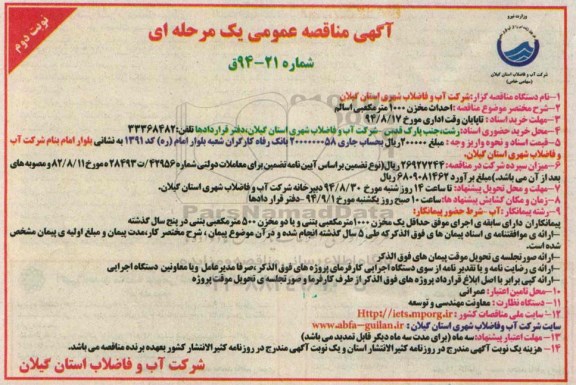 نوبت دوم
آگهی مناقصه عمومی یک مرحله ای
شماره ۲۱-۹۴ق
وزارت نیرو
شرکت آب و فاضلاب شهری استان گیلان
(سهامی خاص)
۱-نام دستگاه مناقصه گزار: شرکت آب و فاضلاب شهری استان گیلان
۲-شرح مختصر موضوع مناقصه: احداث مخزن ۱۰۰۰ مترمکعبی اسالم
۳-مهلت خرید اسناد: تاپایان وقت اداری مورخ ۹۴/۸/۱۷
۴-محل خرید حضوری اسناد: رشت،جنب پارک قدس -شرکت آب و فاضلاب شهری استان گیلان،دفتر قراردادها تلفن: ۳۳۳۶۸۴۸۲
۵-قیمت اسناد و نحوه واریز وجه: مبلغ ۲۰۰۰۰۰ریال بحساب جاری ۲۰۰۰۰۰۰۰۵۸ بانک رفاه کارگران شعبه بلوار امام (ره) کد ۱۳۹۱ به نشانی بلوار امام بنام شرکت آب و فاضلاب شهری استان گیلان.
۶-میزان سپرده شرکت در مناقصه: ۲۶۹۲۷۲۴۴ریال(نوع تضمین براساس آیین نامه تضمین برای معاملات دولتی شماره ۴۲۹۵۶/ت۲۸۴۹۳ه مورخ ۸۲/۸/۱۱ و مصوبه های بعد از آن می باشد.) مبلغ برآورد ۶۸۰۹۰۸۱۴۶۲ ریال
۷-مهلت و محل تحویل پیشنهاد: تا ساعت ۱۴ روز شنبه مورخ ۹۴/۸/۳۰ دبیرخانه شرکت آب و فاضلاب شهری استان گیلان.
۸-زمان و مکان گشایش پیشنهاد ها: ساعت ۱۰ صبح روز یکشنبه مورخ ۹۴/۹/۱ -دفتر قرار دادها
۹-رشته پیمانکار: آب -شرط حضور پیمانکار:
پیمانکاران دارای سابقه ی اجرای موفق حداقل یک مخزن ۱۰۰۰مترمکعبی بتنی و یا دو مخزن ۵۰۰ مترمکعبی بتنی در پنج سال گذشته
-ارائه ی موافقتنامه ی اسناد پیمان ها ی فوق الذکر که طی ۵ سال گذشته انجام شده و در آن موضوع پیمان ، شرح مختصر کار،مدت پیمان و مبلغ اولیه ی پیمان مشخص شده است.
-ارائه صورتجلسه ی تحویل موقت پیمان های فوق الذکر
-ارائه ی رضایت نامه و یا تقدیر نامه از سوی دستگاه اجرایی کارفرمای پروژه های فوق الذکر ،صرفا مدیرعامل ویا معاونین دستگاه اجرایی
-ارائه کپی برابر با اصل ابلاغ قرارداد پروژه های فوق الذکر از طرف کارفرما و صورتجلسه ی تحویل موقت پروژه
۱۰-محل تامین اعتبار: عمرانی
۱۱-دستگاه نظارت: معاونت مهندسی و توسعه
۱۲-سایت ملی مناقصات کشور: Http://iets.mporg.ir
سایت شرکت آب وفاضلاب شهری استان گیلان: www.abfa-guilan.ir
۱۳-مهلت اعتبار پیشنهاد:سه ماه (برای مدت سه ماه دیگر قابل تمدید می باشد)
۱۴-هزینه یک نوبت آگهی مندرج در روزنامه کثیرالانتشار استان و یک نوبت آگهی مندرج در روزنامه کثیرالانتشار کشور بعهده برنده مناقصه می باشد.
شرکت آب و فاضلاب استان گیلان